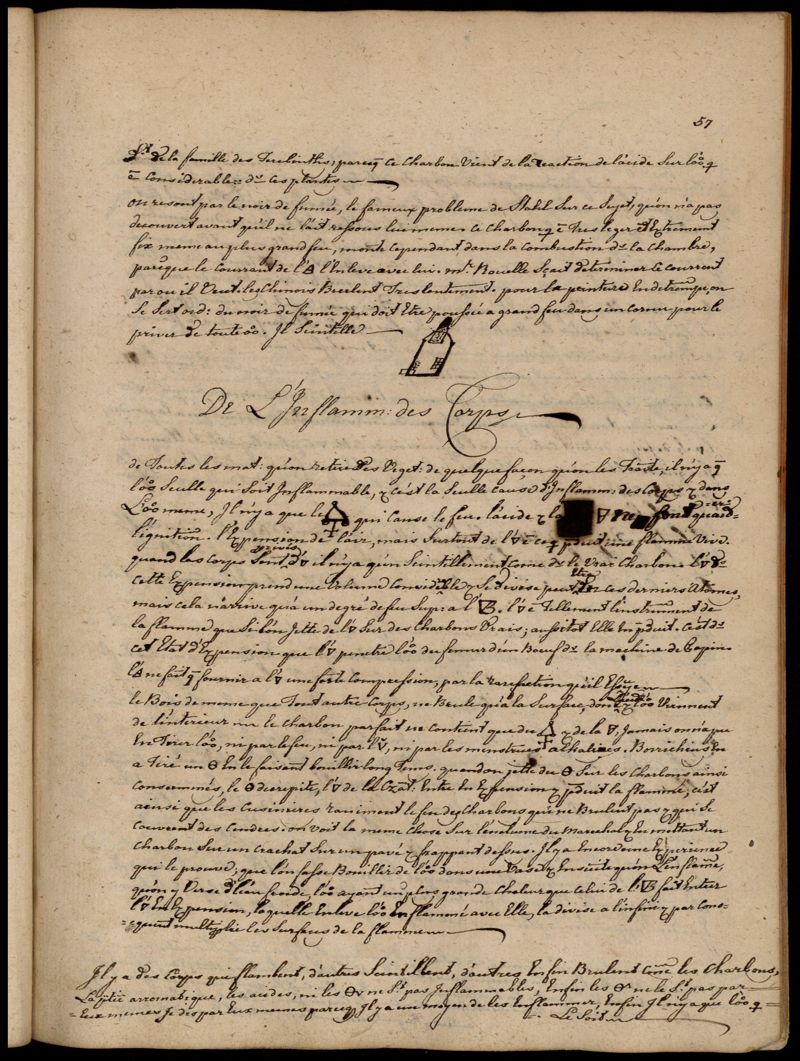 57
de la famille des Terebinthes; parceq ce Charbon Vient de la reaction de l'acide Sur l'oo q
ē Considerable dº ces plantes
on resout par le noir de fumée, le fameux probleme de Stahl Sur ce Sujet, qu'on n'a pas
decouvert avant qu'il ne l'ait resous lui meme. ce Charbon q ē Tres leger et Extremement
fix meme au plus grand feu, monte cependant dans la Combustion dº la Chambre,
parceque le Courant de l'🜁 l'Enleve avec lui. mr. Rouelle Scait determiner le Courrent
par ou il Veut. les Chinois Brulent Tres lentement. pour la peinture En detrempe, on
Se Sert ord: du noir de fumée qui doit Etre poussée a grand feu dans un Cornue pour le
priver de toute oo. Il Scintille
De L'Inflamm: des Corps
de Toutes les mat: qu'on retire des Veget: de quelque façon qu'on les Traite, il n'y a q
l'oo Seulle qui Soit Inflammable, & c'est la Seulle Cause d'Inflamm: des Corps & dans
L'oo meme, Il n'y a que le 🜍 qui Cause le feu. l'acide & la 🜃
l'ignition. l'Expension de l'air, mais Surtout de l'🜄 ē ce q pduit une flamme Vive.
quand les Corps Sont privés d'🜄 il n'y a qu'un Scintillement Come dº le Vrai Charbon. l'🜄 dº
cette Expension prend un Volume Considble & Se Divise peut Etre En ces derniers Atomes,
mais cela n'arrive qu'a un degré de feu Sup: a l'🜄B. l'🜄 ē Tellement l'instrument de
la flamme que Si l'on Jette de l'🜄 Sur des Charbons Vrais; aussitot Elle En pduit. C'est dº
cet Etat d'Expension que l'🜄 penetre l'os du femur d'un Boeuf dº la machine de Papin
l'🜁 ne fait q fournir a l'🜄 une forte Compression, par la rarefaction qu'il Essuye
le Bois de meme que Tout autre Corps, ne Brule qu'a la Surface, dont l'🜄 & l'oo Viennent
de l'interieur le Charbon parfait ne Contient que du 🜍 & de la 🜃, Jamais on n'a pu
En Tirer l'oo, ni par le feu, ni par l'🜄, ni par les menstrues alkalines. Borrichius En
a Tiré un 🜔 En le faisant bouillir long Tems. quand on Jette du 🜔 Sur les Charbons ainsi
Consummés, le 🜔 decrepite, l'🜄 de la Crist. Entre En Expension & pduit la flamme; C'est
ainsi que les Cuisinieres raniment le feu des Charbons qui ne Brulent pas & qui Se
Couvrent des Cendres: on voit la meme Chose Sur l'enclume du Marechal & En mettant un
Charbon Sur un Crachat Sur un pavé & frappent dessus. Il y a Encore Une Experience
qui le prouve; que l'on fasse Bouillir de l'oo dans un Vase & En suite qu'on L'enflame,
qu'on y Verse d'L'eau froide, l'oo ayant un plus grande Chaleur que celui de l'🜄B fait Entrer
l'🜄 En Expension, laquelle Enleve l'oo Enflammé avec Elle, la divise a l'infini & par Conse-
=quent multiplie les Surfaces de la flamme
Il y a Des Corps qui flambent, d'autres Scintillent, d'autres Enfin Brulent Come les Charbons,
La ptie arromatique, les acides, ni les 🜔v ne St. pas Inflammables, Enfin les 🜔 ne le St. pas par
Eux memes. Je dis par Eux memes parceq Il y a un moyen de les Enflammer, Enfin Il n'y a que l'oo q
Le Soit